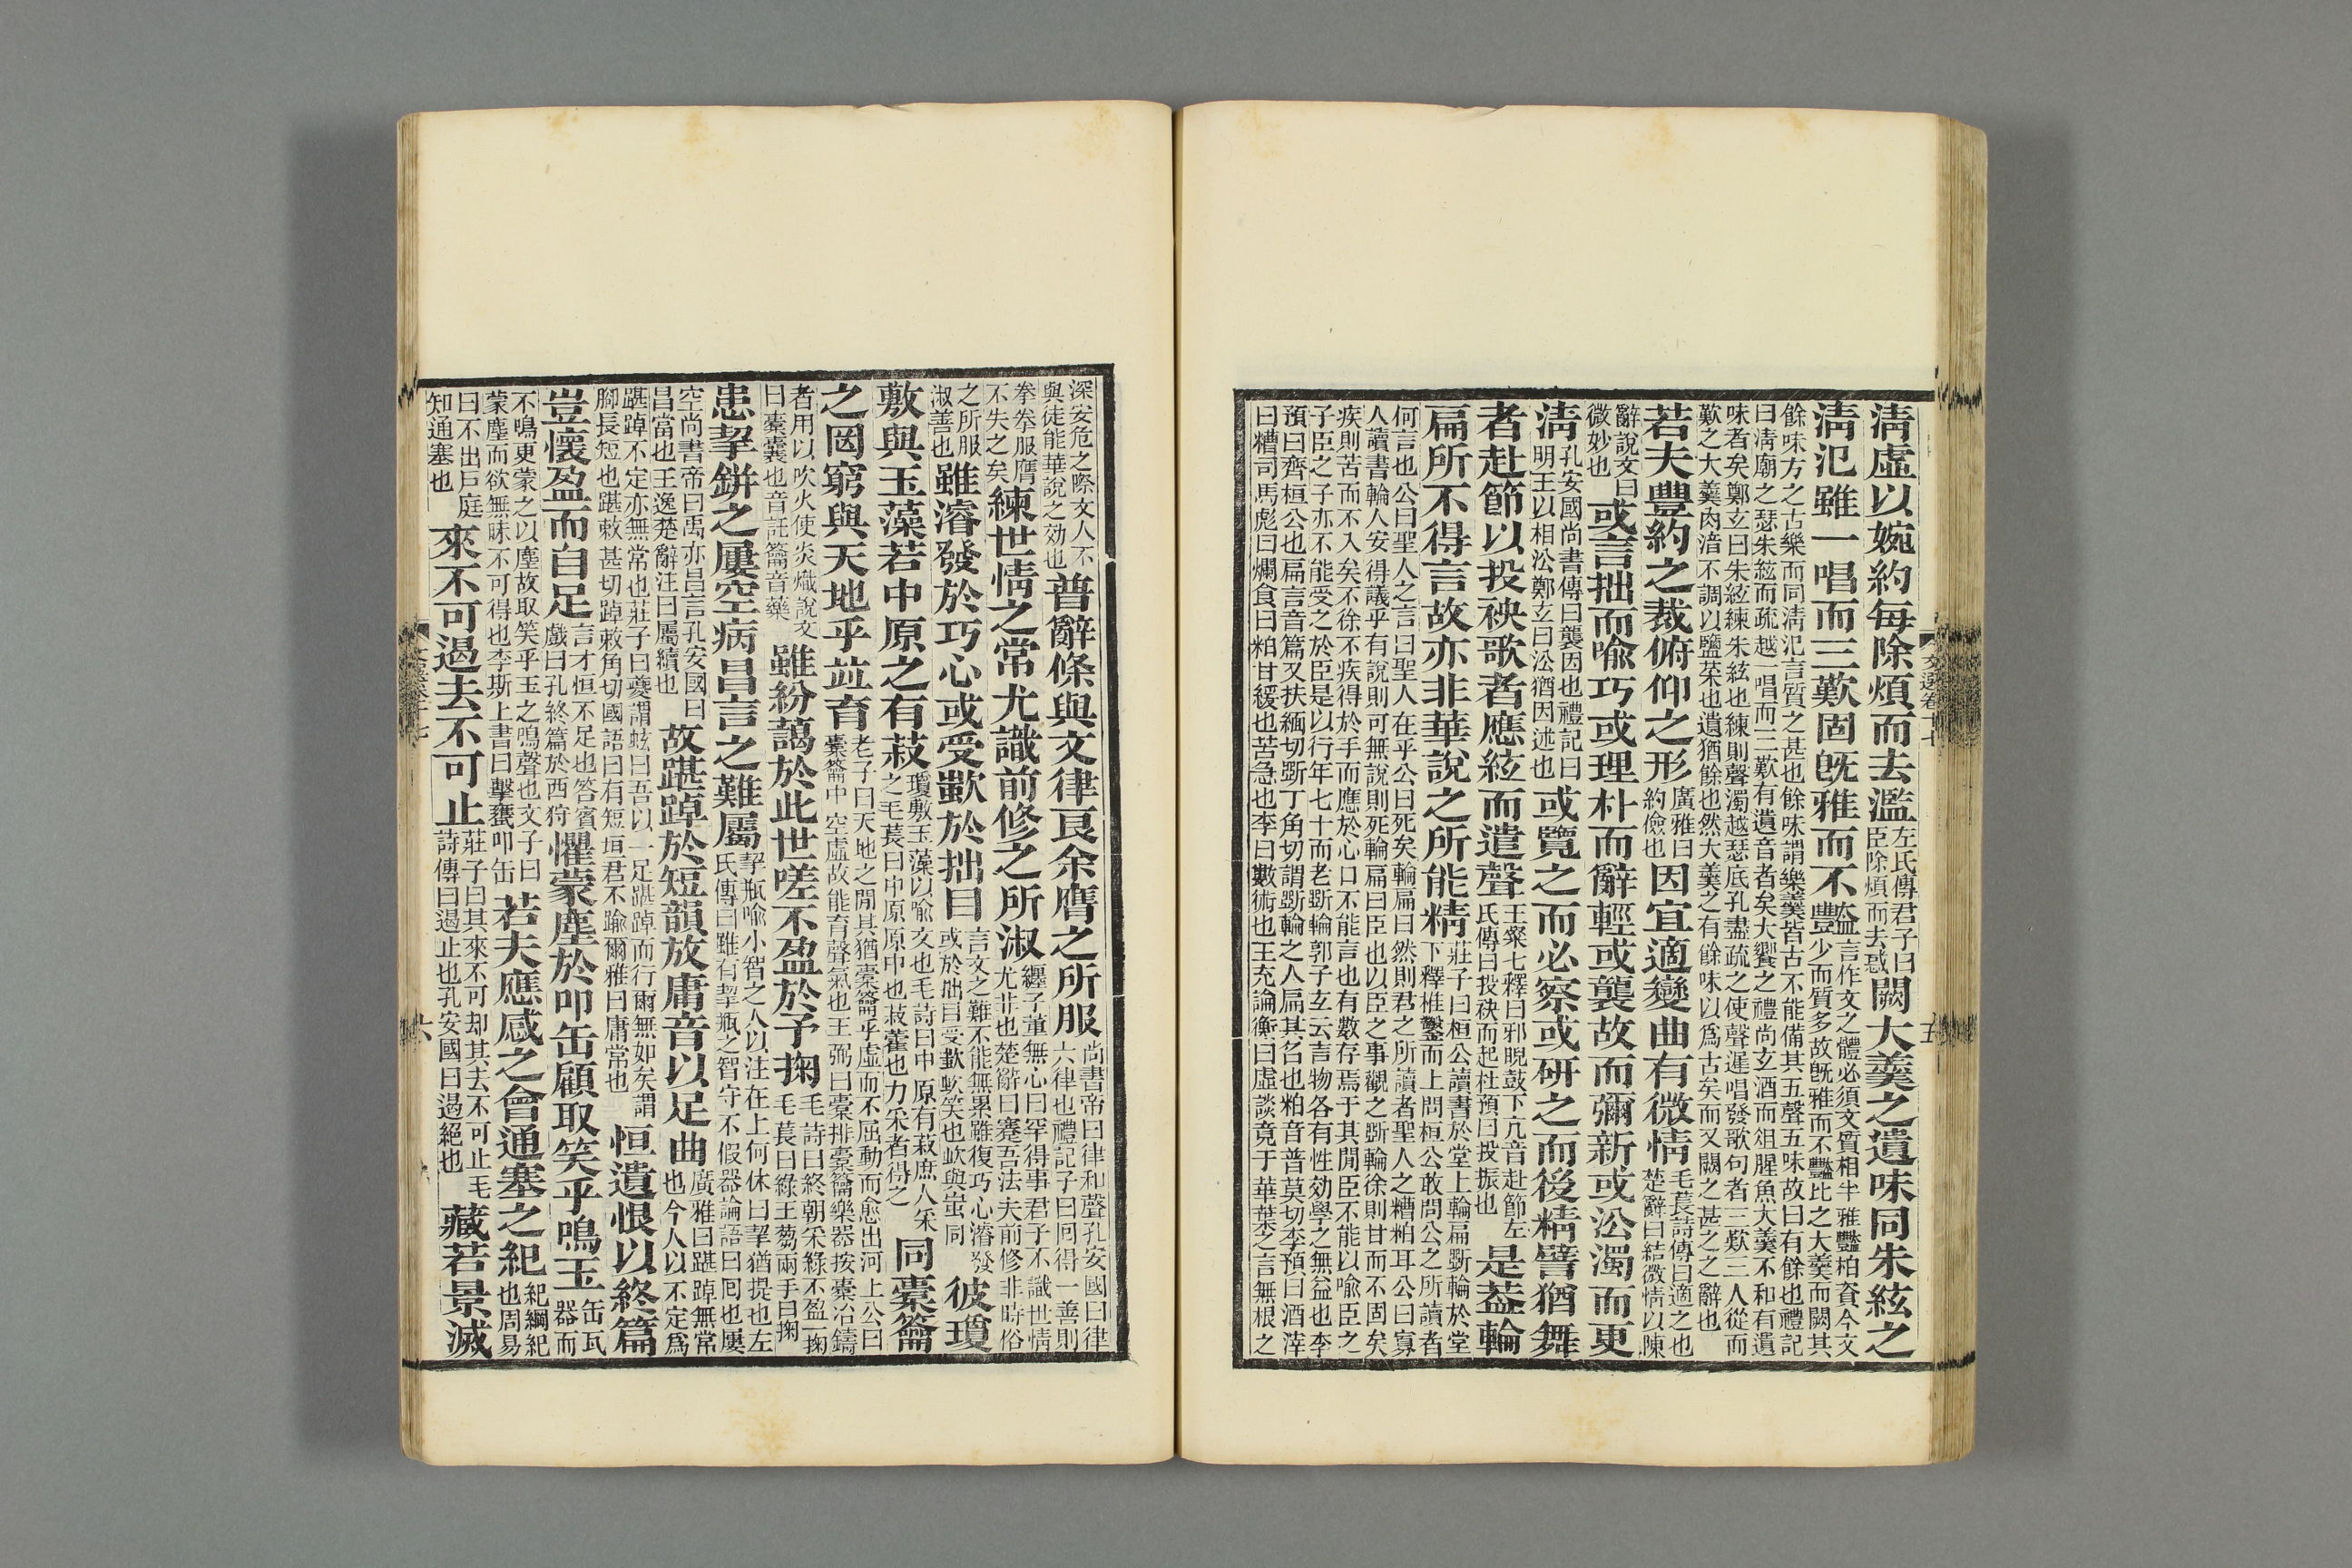 清虛以婉約每除煩而去濫左氏傳君子曰臣除煩而去惑闕大羹之遺味同朱絃之
清氾雖一唱而三歎固旣雅而不豔言作文之體必須文質相半雅豔相資今文少而質多故旣雅而不豔比之大羹而闕其
餘味方之古樂而同清氾言質之甚也餘味謂樂羹皆古不能備其五聲五味故曰有餘也禮記曰清廟之瑟朱絃而疏越一唱而三歎有遺音者矣大饗之禮尚玄酒而俎腥魚大羹不和有遺
味者矣鄭玄曰朱絃練朱絃也練則聲濁越瑟底孔畫疏之使聲遲唱發歌句者三歎三人從而歎之大羹肉湆不調以鹽菜也遺猶餘也然大羹之有餘味以爲古矣而又闕之甚之之辭也
若夫豐約之裁俯仰之形廣雅曰約儉也因宜適變曲有微情毛萇詩傳曰適之也楚辭曰結微情以陳
辭說文曰微妙也或言拙而喻巧或理朴而辭輕或襲故而彌新或沿濁而更
清孔安國尚書傳曰襲因也禮記曰明王以相沿鄭玄曰沿猶因述也或覽之而必察或研之而後精譬猶舞
者赴節以投袂歌者應絃而遣聲王粲七釋曰邪睨鼓下亢音赴節左氏傳曰投袂而起杜預曰投振也是蓋輪
扁所不得言故亦非華說之所能精莊子曰桓公讀書於堂上輪扁斲輪於堂下釋椎鑿而上問桓公敢問公之所讀者
何言也公曰聖人之言曰聖人在乎公曰死矣輪扁曰然則君之所讀者聖人之糟粕耳公曰寡人讀書輪人安得議乎有說則可無說則死輪扁曰臣也以臣之事觀之斲輪徐則甘而不固矣
疾則苦而不入矣不徐不疾得於手而應於心口不能言也有數存焉于其閒臣不能以喻臣之子臣之子亦不能受之於臣是以行年七十而老斲輪郭子玄云言物各有性効學之無益也李
預曰齊桓公也扁言音篇又扶緬切斲丁角切謂斲輪之人扁其名也粕音普莫切李預曰酒滓曰糟司馬彪曰爛食曰粕甘緩也苦急也李曰數術也王充論衡曰虛談竟于華葉之言無根之
文選卷十七
五
深安危之際文人不與徒能華說之効也普辭條與文律良余膺之所服尚書帝曰律和聲孔安國曰律六律也禮記子曰回得一善則
拳拳服膺不失之矣練世情之常尤識前修之所淑纏子董無心曰罕得事君子不識世情尤非也楚辭曰謇吾法夫前修非時俗
之所服淑善也雖濬發於巧心或受㰞於拙目言文之難不能無累雖復巧心濬發或於拙目受㰞㰞笑也㰞與蚩同彼瓊
敷與玉藻若中原之有菽瓊敷玉藻以喻文也毛詩曰中原有菽庶人采之毛萇曰中原原中也菽藿也力采者得之同橐籥
之罔窮與天地乎竝育老子曰天地之閒其猶橐籥乎虛而不屈動而愈出河上公曰橐籥中空虛故能育聲氣也王弼曰橐排橐籥樂器按橐冶鑄
者用以吹火使炎熾說文曰橐囊也音託籥音藥雖紛藹於此世嗟不盈於予掬毛詩曰終朝采綠不盈一掬毛萇曰綠王芻兩手曰掬
患挈缾之屢空病昌言之難屬挈瓶喻小智之人以注在上何休曰挈猶提也左氏傳曰雖有挈瓶之智守不假器論語曰回也屢
空尚書帝曰禹亦昌言孔安國曰昌當也王逸楚辭注曰屬續也故踸踔於短韻放庸音以足曲廣雅曰踸踔無常也今人以不定爲
踸踔不定亦無常也莊子曰夔謂蚿曰吾以一足踸踔而行爾無如矣謂腳長短也踸敕甚切踔敕角切國語曰有短垣君不踰爾雅曰庸常也恒遺恨以終篇
豈懷盈而自足言才恒不足也答賓戲曰孔終篇於西狩懼蒙塵於叩缶顧取笑乎鳴玉缶瓦器而
不鳴更蒙之以塵故取笑乎玉之鳴聲也文子曰蒙塵而欲無昧不可得也李斯上書曰擊甕叩缶若夫應感之會通塞之紀紀綱紀也周易
曰不出戶庭知通塞也來不可遏去不可止莊子曰其來不可却其去不可止毛詩傳曰遏止也孔安國曰遏絕也藏若景滅
六